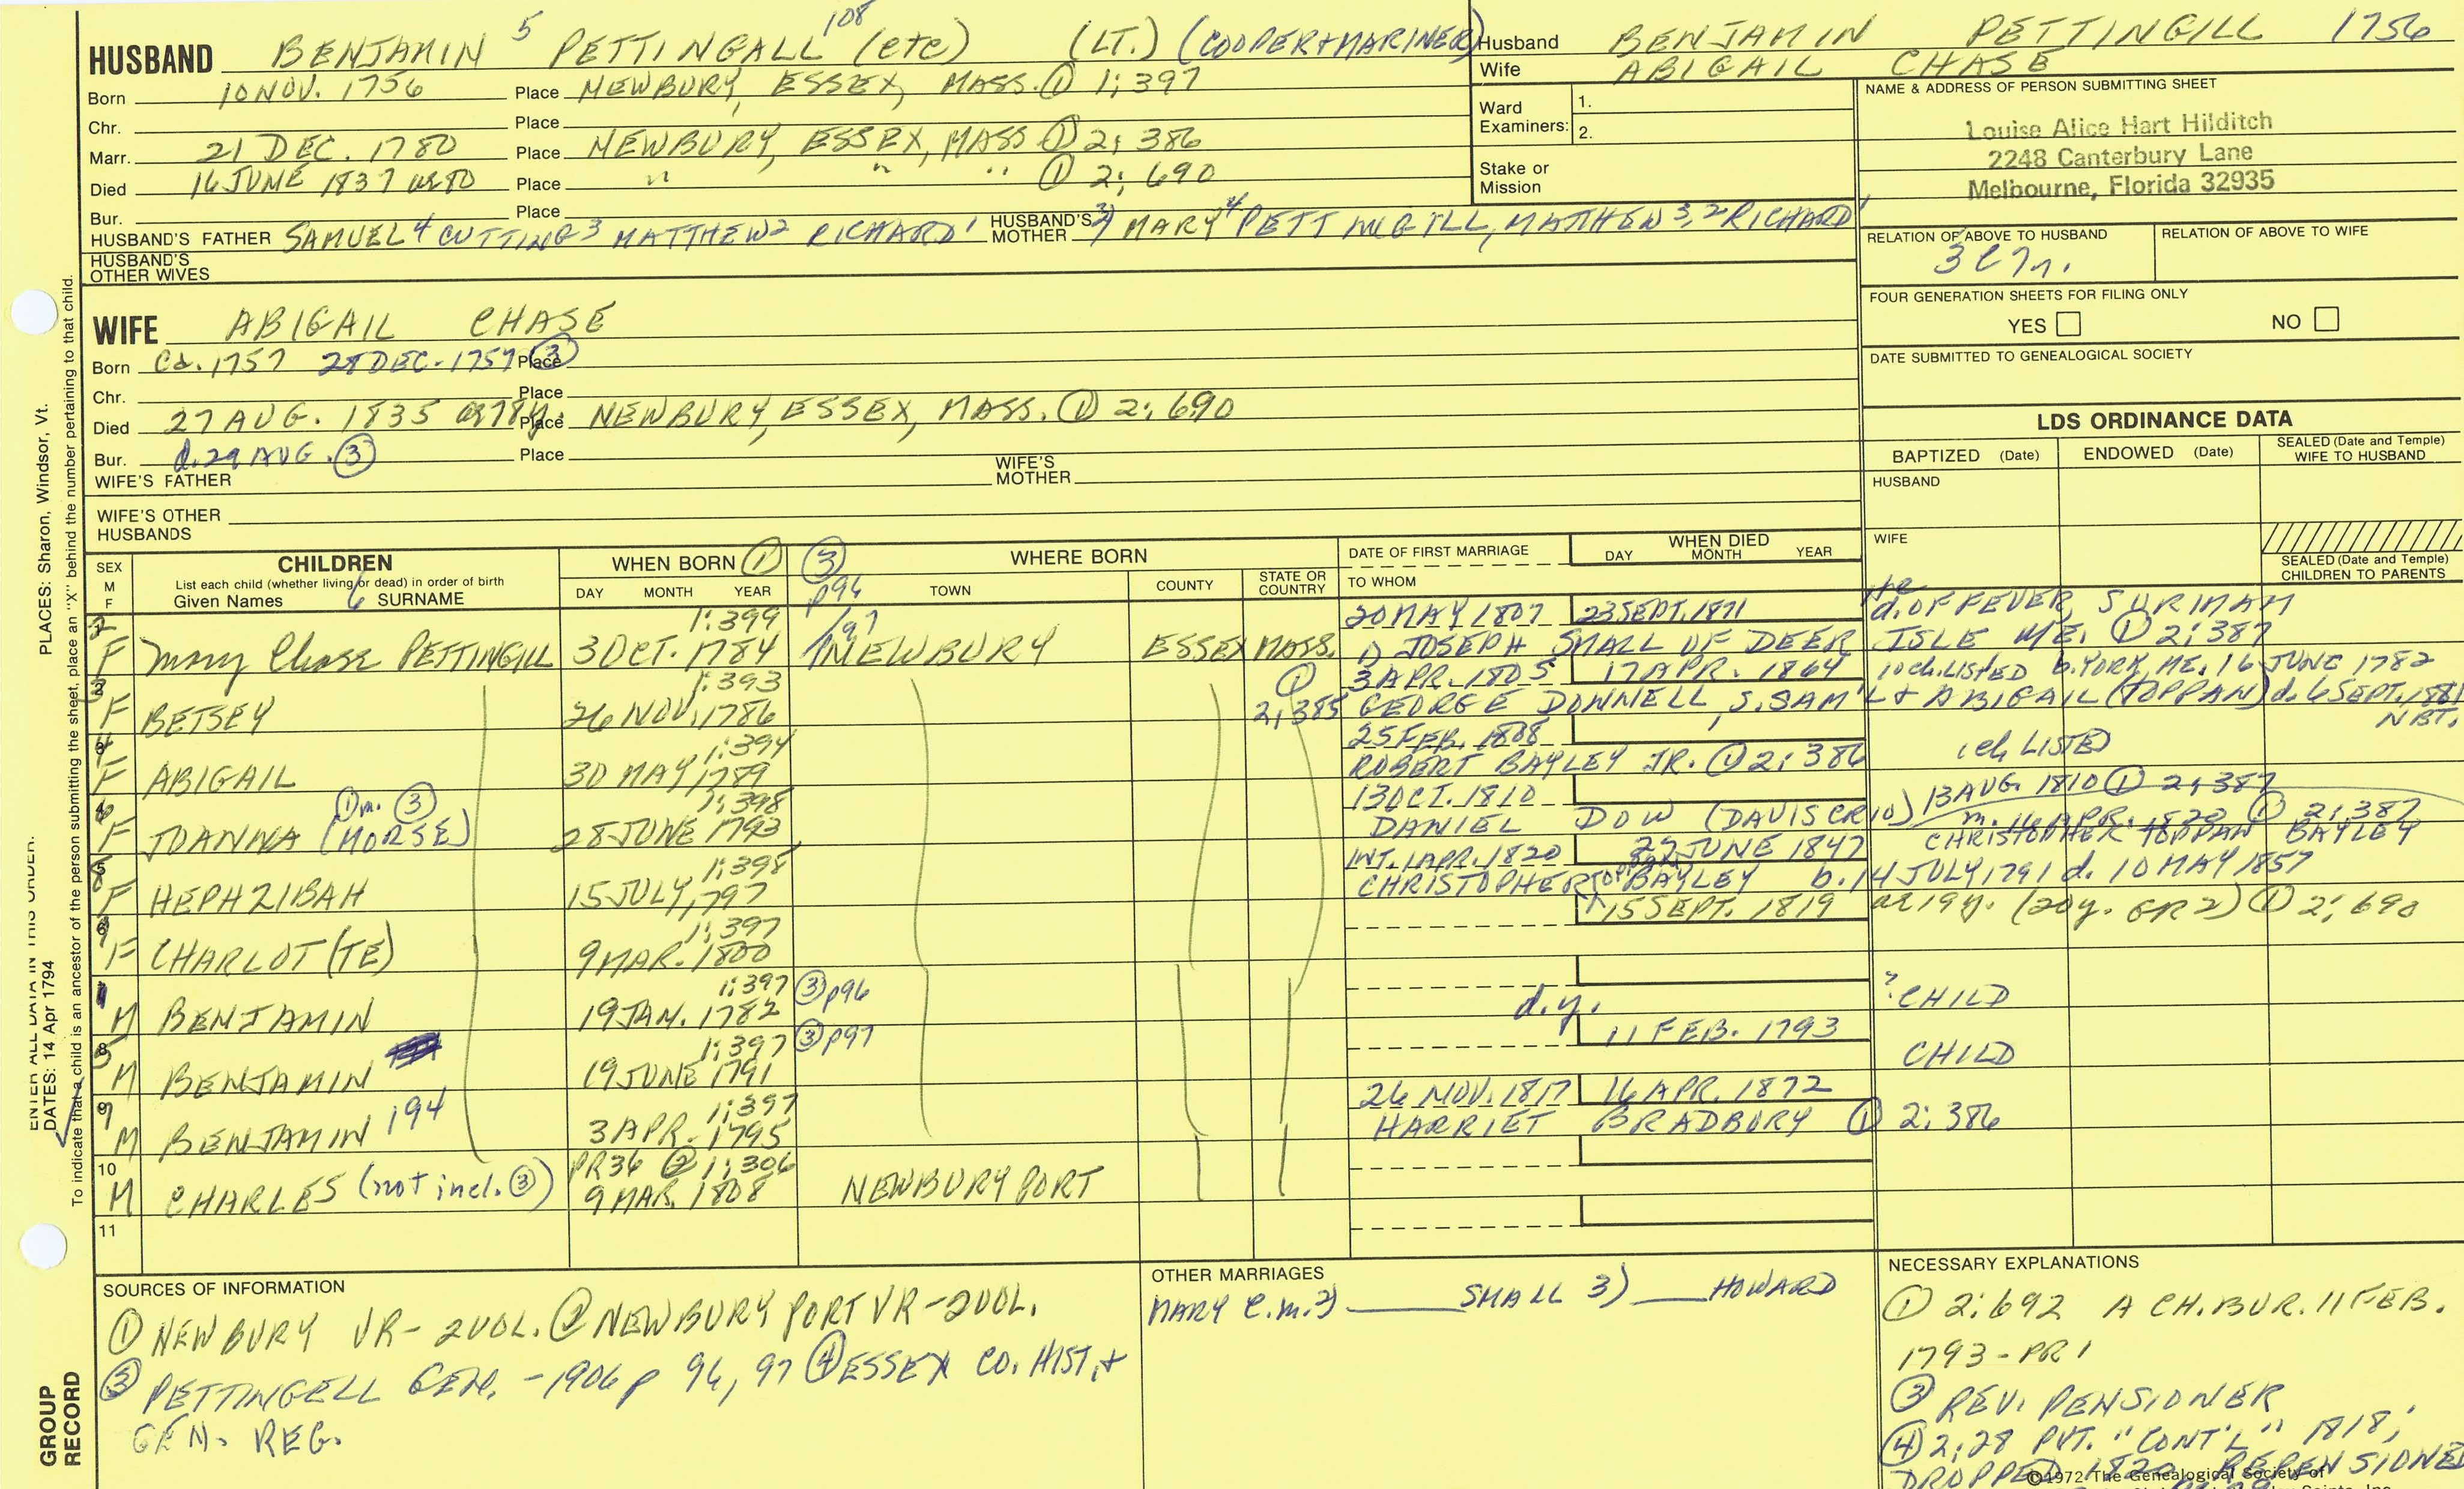 HUSBAND BENJAMIN 5 PETTINGALL 108 (etc) (LT.) (COOPER + MARINER)
Born 10 NOV. 1756 Place NEWBURY, ESSEX, MASS. ① 1:397
Chr. Place
Marr. 21 DEC. 1780 Place NEWBURY, ESSEX, MASS ① 2:386
Died 16 JUNE 1837 ae 80 Place " " " ① 2:690
Bur. Place
HUSBAND'S FATHER SAMUEL 4 CUTTING 3 MATTHEW 2 RICHARD 1 HUSBAND'S MOTHER MARY 4 PETTINGILL, MATTHEW 3, 2 RICHARD 1
HUSBAND'S OTHER WIVES
Husband BENJAMIN PETTINGILL 1756
Wife ABIGAIL CHASE
Ward Examiners: 1.
2.
Stake or Mission
NAME & ADDRESS OF PERSON SUBMITTING SHEET
Louise Alice Hart Hilditch
2248 Canterbury Lane
Melbourne, Florida 32935
RELATION OF ABOVE TO HUSBAND RELATION OF ABOVE TO WIFE
FOUR GENERATION SHEETS FOR FILING ONLY
YES NO
DATE SUBMITTED TO GENEALOGICAL SOCIETY
WIFE ABIGAIL CHASE
Born Ca. 1757 28 DEC. 1757 ③ Place
Chr. Place
Died 27 AUG. 1835 ae 78y. Place NEWBURY, ESSEX, MASS. ① 2:690
Bur. d. 29 AUG. ③ Place
WIFE'S FATHER WIFE'S MOTHER
WIFE'S OTHER HUSBANDS
LDS ORDINANCE DATA
BAPTIZED (Date) ENDOWED (Date) SEALED (Date and Temple) WIFE TO HUSBAND
HUSBAND
WIFE
SEALED (Date and Temple) CHILDREN TO PARENTS
SEX M F
CHILDREN
List each child (whether living or dead) in order of birth
Given Names 6 SURNAME
WHEN BORN ①
DAY MONTH YEAR
③ p96
/97
WHERE BORN
TOWN COUNTY STATE OR COUNTRY
DATE OF FIRST MARRIAGE
TO WHOM
WHEN DIED
DAY MONTH YEAR
1:399 20 MAY 1807 23 SEPT. 1871 d. OF FEVER, SURINAM
F Mary Chase PETTINGILL 3 OCT. 1784 NEWBURY ESSEX MASS. 1) JOSEPH SMALL OF DEER ISLE ME. ① 2:387
1:393 ① 3 APR. 1805 17 APR. 1864 10 ch. LISTED b. YORK, ME. 16 JUNE 1782
F BETSEY 26 NOV. 1786 2:385 GEORGE DONNELL, S. SAM'L + ABIGAIL (TOPPAN) d. 6 SEPT. 1881 NBT.
1:394 25 FEB. 1808 ch LISTED
F ABIGAIL 30 MAY 1789 ROBERT BAYLEY JR. ① 2:386
① m. ③ 1:398 13 OCT. 1810 13 AUG. 1810 ① 2:387
F JOANNA (MORSE) 28 JUNE 1793 DANIEL DOW (DAVIS CR10) ① 2:387
CHRISTOPHER TOPPAN BAYLEY
5 1:398 INT. 1 APR. 1820 JUNE 1847
F HEPHZIBAH 15 JULY, 1797 CHRISTOPHER BAYLEY b. 14 JULY, 1791 d. 10 MAY 1857
6 1:397 15 SEPT. 1819 ae 19y. (20y. GR2) ① 2:690
F CHARLOT(TE) 9 MAR. 1800
1:397 ③ p96 d.y. ? CHILD
M BENJAMIN 19 JAN. 1782
1:397 ③ p97 11 FEB. 1793 CHILD
M BENJAMIN 19 JUNE 1791
9 1:397 26 NOV. 1817 16 APR. 1872
M BENJAMIN 194 3 APR. 1795 HARRIET BRADBURY ① 2:386
10 PR36 ② 1:306
M CHARLES (not incl. ③) 9 MAR. 1808 NEWBURYPORT
11
SOURCES OF INFORMATION
① NEWBURY VR - 2 VOL. ② NEWBURYPORT VR - 2 VOL.
③ PETTINGELL GEN. - 1906 p 96, 97 ④ ESSEX CO. HIST. +
GEN. REG.
OTHER MARRIAGES
MARY C. m. 2) SMALL 3) HOWARD
NECESSARY EXPLANATIONS
① 2:692 A CH. BUR. 11 FEB.
1793 - PR1
③ REV. PENSIONER
④ 2:28 PVT. "CONT'L" 1818;
DROPPED REPENSIONED
©1972 The Genealogical Society of
PLACES: Sharon, Windsor, Vt.
To indicate that a child is an ancestor of the person submitting the sheet, place an "X" behind the number pertaining to that child.
ENTER ALL DATA IN THIS ORDER:
DATES: 14 Apr 1794
GROUP RECORD